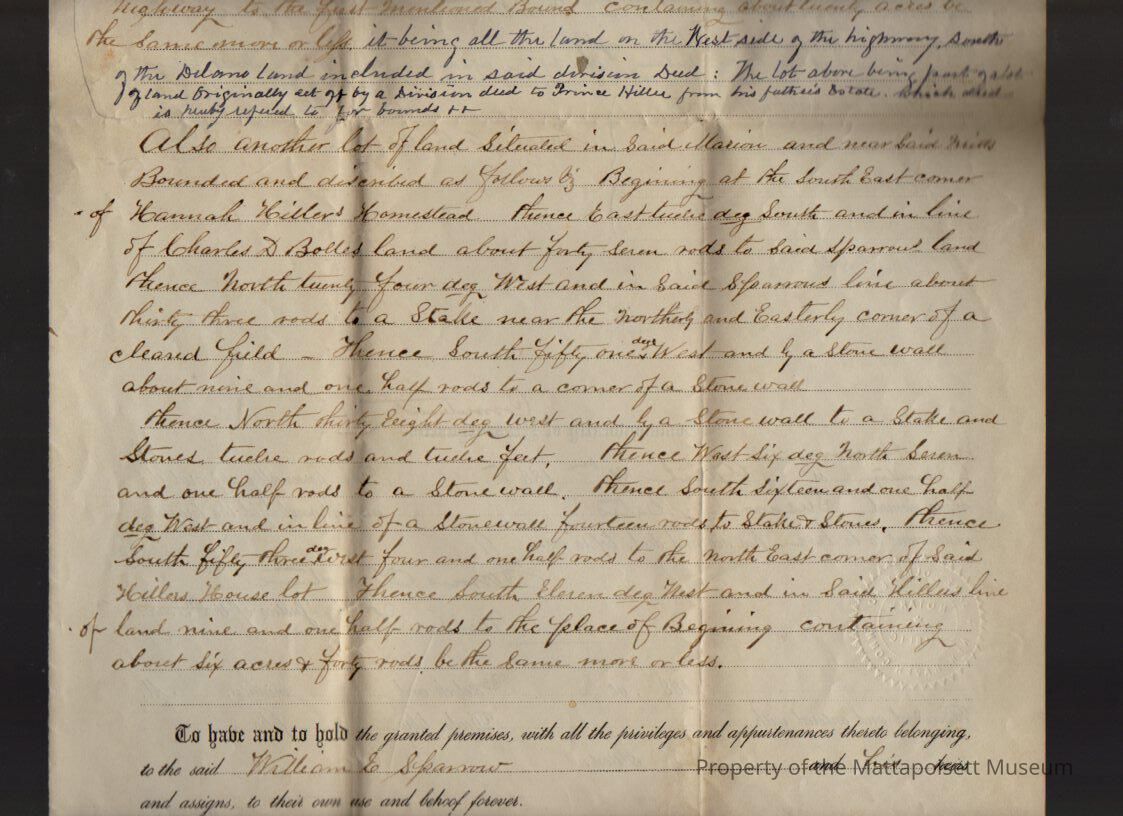 highway to the first mentioned Bound containing about twenty acres be
the same more or less it being all the land on the West side of the highway, South
of the Delano Land included in said division Deed: The Lot above being part of a lot
of land Originally set off by a Division deed to Prince Hiller from his father's Estate. which deed
is hereby refered to for bounds
Also another lot of land Situated in Said Marion and near Said
Bounded and discribed as follows viz Begining at the South East corner
of Hannah Hillers Homestead Thence East twelve deg South and in line
of Charles D Bolles land about forty Seven rods to Said Sparrows land
Thence North twenty four deg West and in Said Sparrows line about
thirty three rods to a Stake near the Northerly and Easterly corner of a
cleared field – Thence South fifty one degs West and by a Stone wall
about nine and one half rods to a corner of a Stone wall
Thence North thirty Eeight deg west and by a Stone wall to a Stake and
Stones twelve rods and twelve feet, Thence West Six deg North Seven
and one half rods to a Stone wall. Thence South Sixteen and one half
deg West and in line of a Stonewall fourteen rods to Stake & Stones. Thence
South fifty three deg West four and one half rods to the North East corner of Said
Hillers House lot Thence South Eleven deg West and in Said Hillers line
of land nine and one half rods to the place of Begining containing
about Six acres & forty rods be the Same more or less.
To have and to hold the granted premises, with all the privileges and appurtenances thereto belonging,
to the said William E Sparrow and his heirs
and assigns, to their own use and behoof forever.
Property of the Mattapoisett Museum